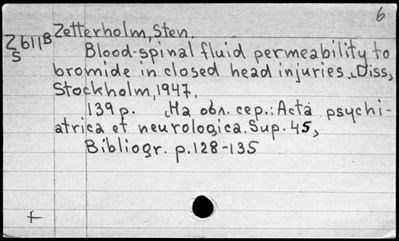 6
Zetterholm, Sten.
Z611B
S
Blood-spinal fluid permeability to
bromide in closed head injuries. Diss,
Stockholm, 1947.
139 p. На обл. сер.: Acta psychi-
atrica et neurologica. Sup. 45,
Bibliogr. p. 128-135
+